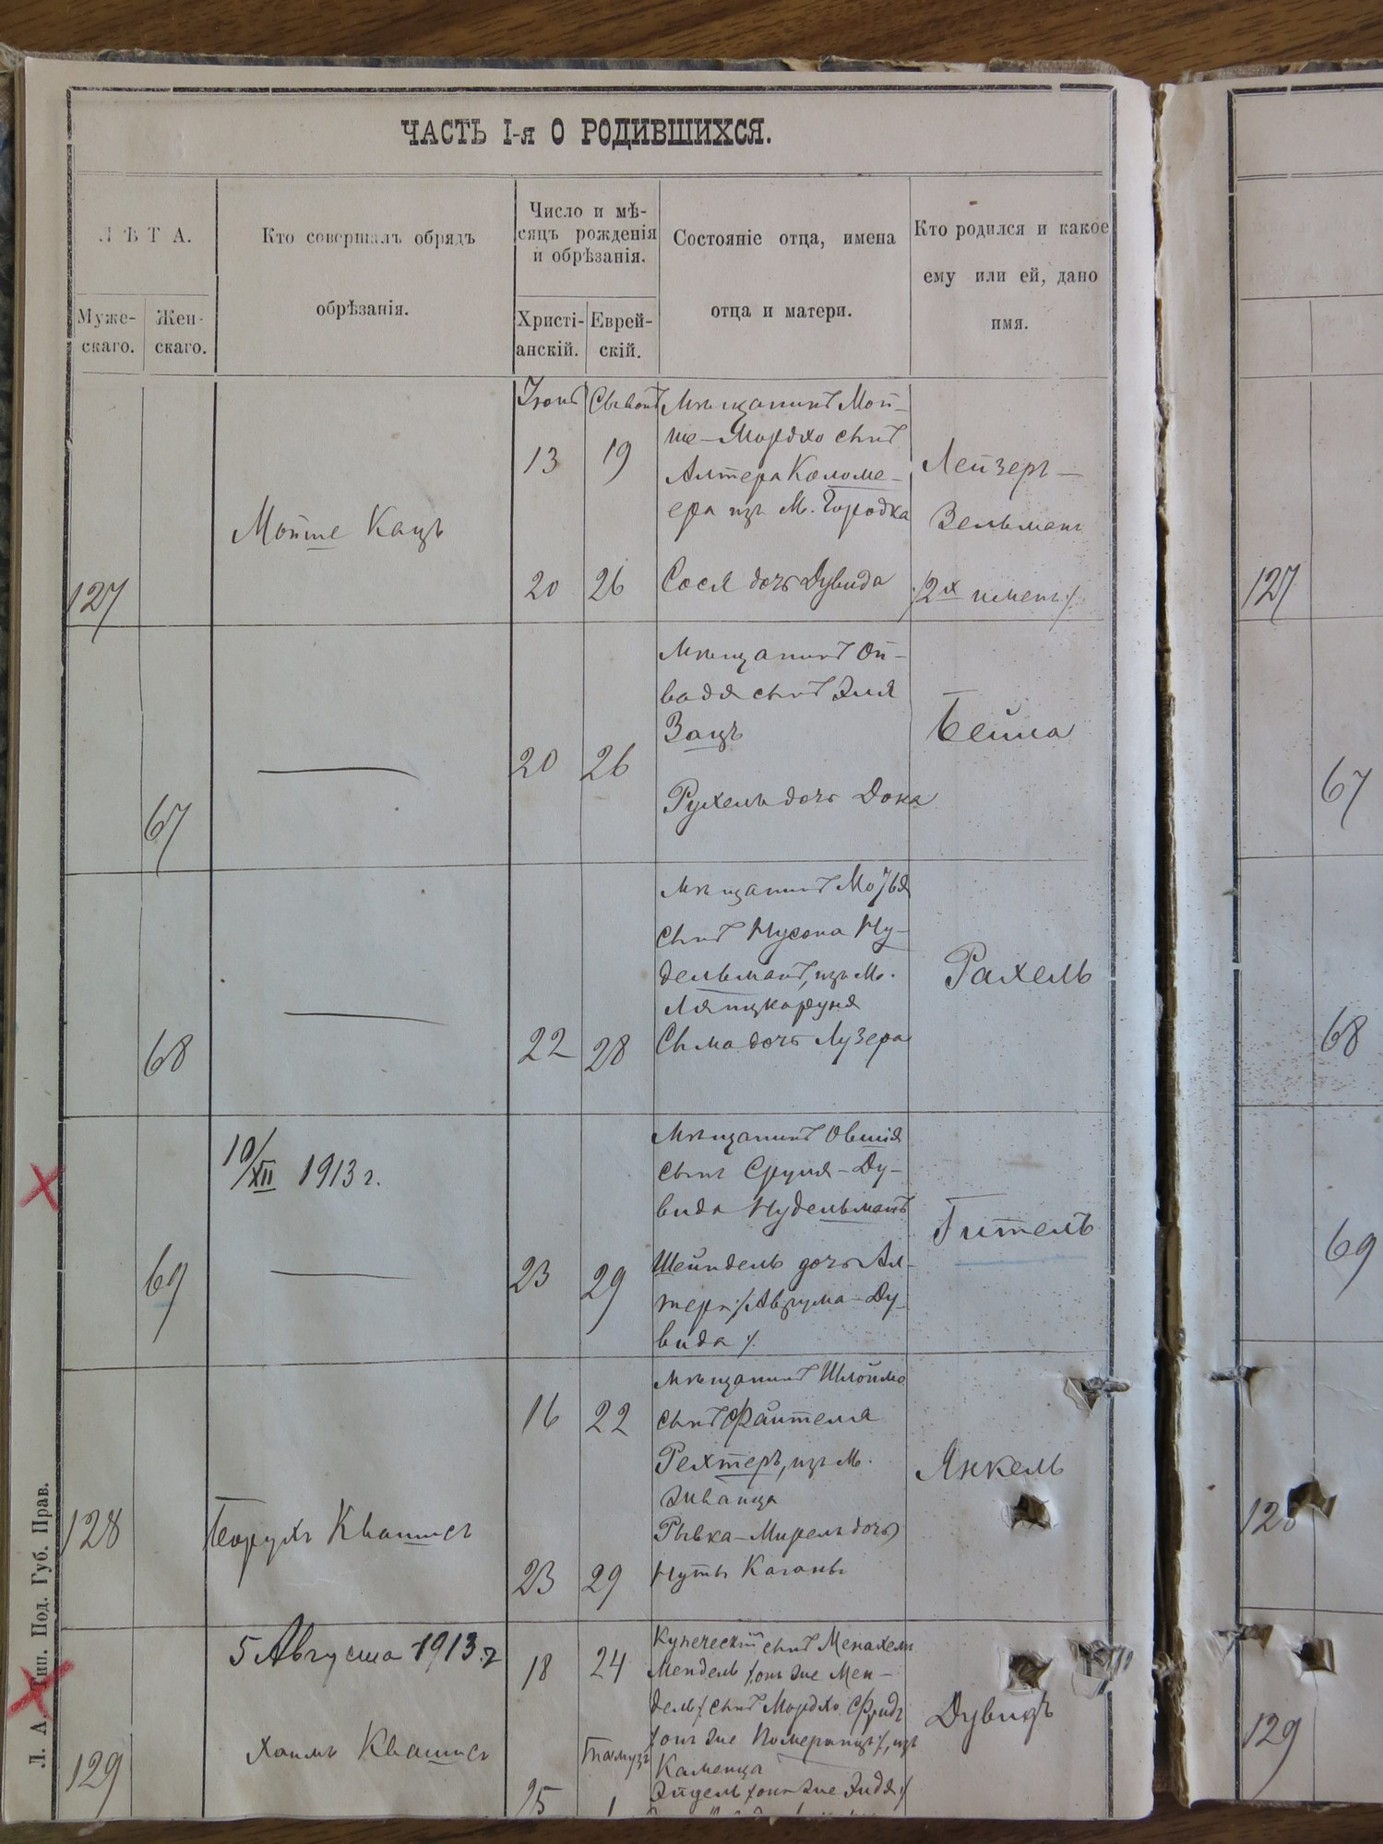 ЧАСТЬ I-я О РОДИВШИХСЯ.
ЛѢТА.
Муже-
скаго.
Жен-
скаго.
Кто совершалъ обрядъ
обрѣзанія.
Число и мѣ-
сяцъ рожденія
и обрѣзанія.
Христі-
анскій.
Еврей-
скій.
Состояніе отца, имена
отца и матери.
Кто родился и какое
ему или ей, дано
имя.
127
Мойше Кацъ
Іюнь
13
20
Сывонъ
19
26
Мѣщанинъ Мой-
ше-Мордхо сынъ
Алтера Коломе-
ера изъ м. Городка
Сося дочь Дувида
Лейзеръ-
Зельманъ
/2х именъ/
127
67
20
26
Мѣщанинъ
сынъ Эля
Зацъ
Рухель дочь Дона
Бейла
67
68
22
28
Мѣщанинъ
сынъ Нусона Ну-
дельманъ, изъ м.
Ляцкоруня
Сыма дочь Лузера
Рахель
68
10/XII 1913 г.
69
23
29
Мѣщанинъ Овшія
сынъ Сруля-Ду-
вида Нудельманъ
Шейндель дочь Ал-
тера /Аврума-Ду-
вида/.
Гитель
69
128
Борухъ Квашисъ
16
23
22
29
Мѣщанинъ Шлоймо
сынъ Файтеля
Рехтеръ, изъ м.
Жванца
Рывка-Мирель дочь
Нуты Каганъ
Янкель
128
5 Августа 1913 г
129
Хаимъ Квашисъ
18
25
24
Тамузъ
1
Купеческій сынъ Менахемъ
Мендель /онъ же Мен-
дель/ сынъ Мордхо
/онъ же Померанцъ/, изъ
Каменца
Эйдель /она же Эидя/
Дувидъ
129
Л. А. Тип. Под. Губ. Прав.